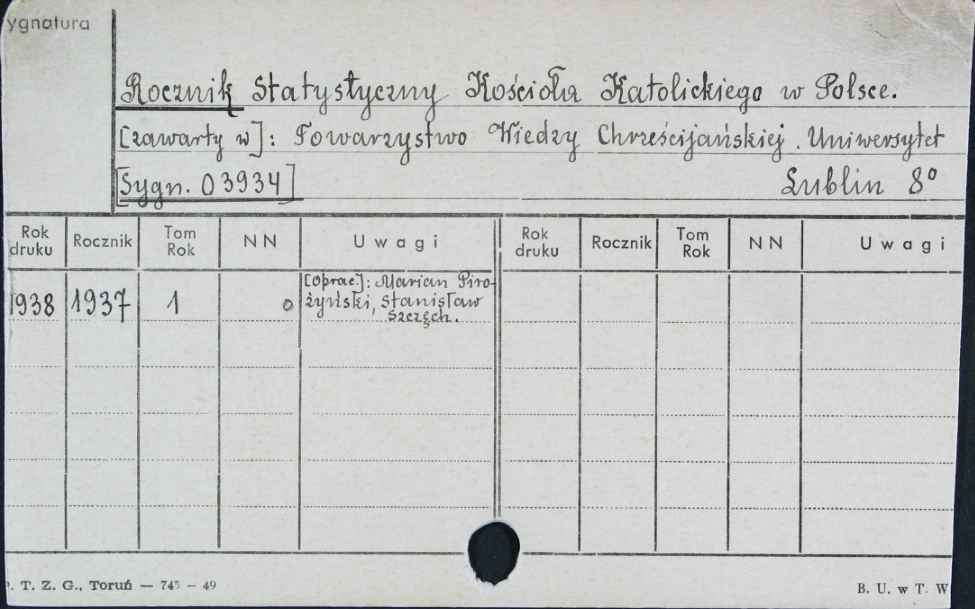 ygnatura
Rocznik Statystyczny Kościoła Katolickiego w Polsce.
[zawarty w]: Towarzystwo Wiedzy Chrześcijańskiej. Uniwersytet
[Sygn. 03934] Lublin 8°
Rok druku Rocznik Tom Rok NN Uwagi Rok druku Rocznik Tom Rok NN Uwagi
1938 1937 1 o [Oprac.]: Marian Piro-
żyński, Stanisław
Szczęch.
. T. Z. G., Toruń — 745 — 49 B. U. w T. W